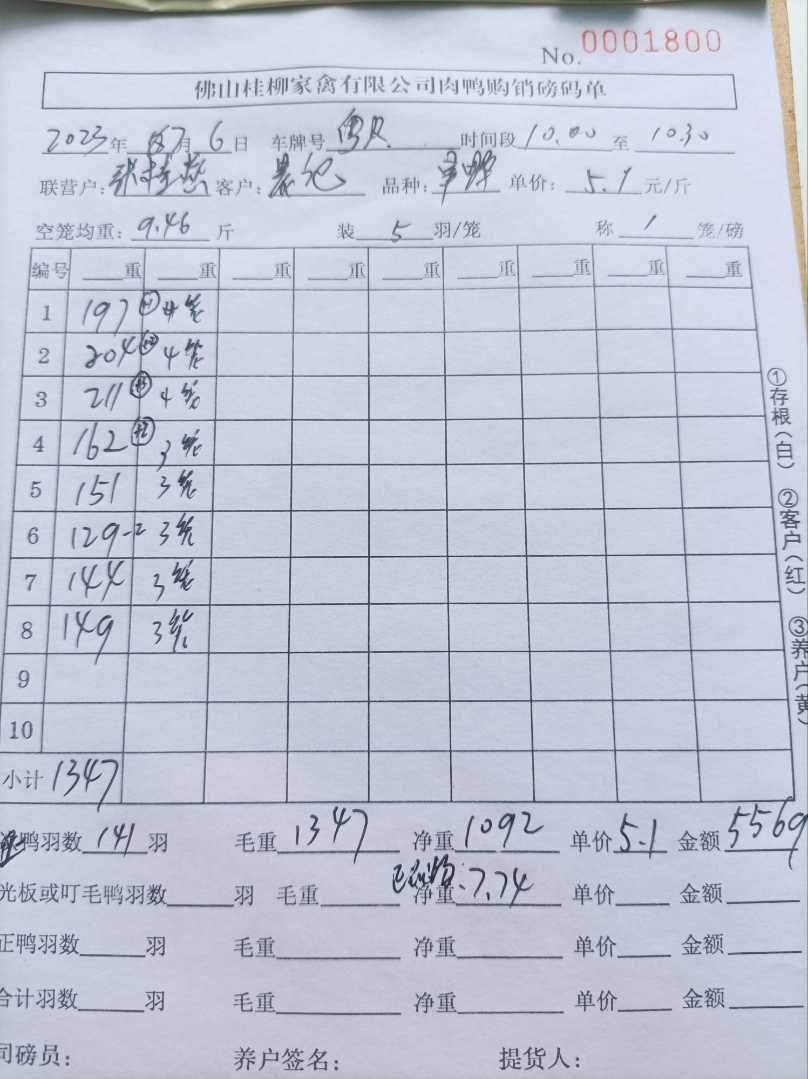 No. 0001800
佛山桂柳家禽有限公司肉鸭购销磅码单
2023年 7月 6日 车牌号 粤 时间段 10.00 至 10.30
联营户: 张桂燕 客户: 品种: 单价: 5.1 元/斤
空笼均重: 9.46 斤 装 5 羽/笼 称 1 笼/磅
编号 重 重 重 重 重 重 重 重 重
1 197 +1 4笼
2 204 +2 4笼
3 211 +3 4笼
4 162 +2 3笼
5 151 3笼
6 129 -2 3笼
7 144 3笼
8 149 3笼
9
10
小计 1347
鸭羽数 141 羽 毛重 1347 净重 1092 单价 5.1 金额 5569
光板或叮毛鸭羽数 羽 毛重 净重 7.74 单价 金额
正鸭羽数 羽 毛重 净重 单价 金额
合计羽数 羽 毛重 净重 单价 金额
司磅员: 养户签名: 提货人:
①存根(白) ②客户(红) ③养户(黄)